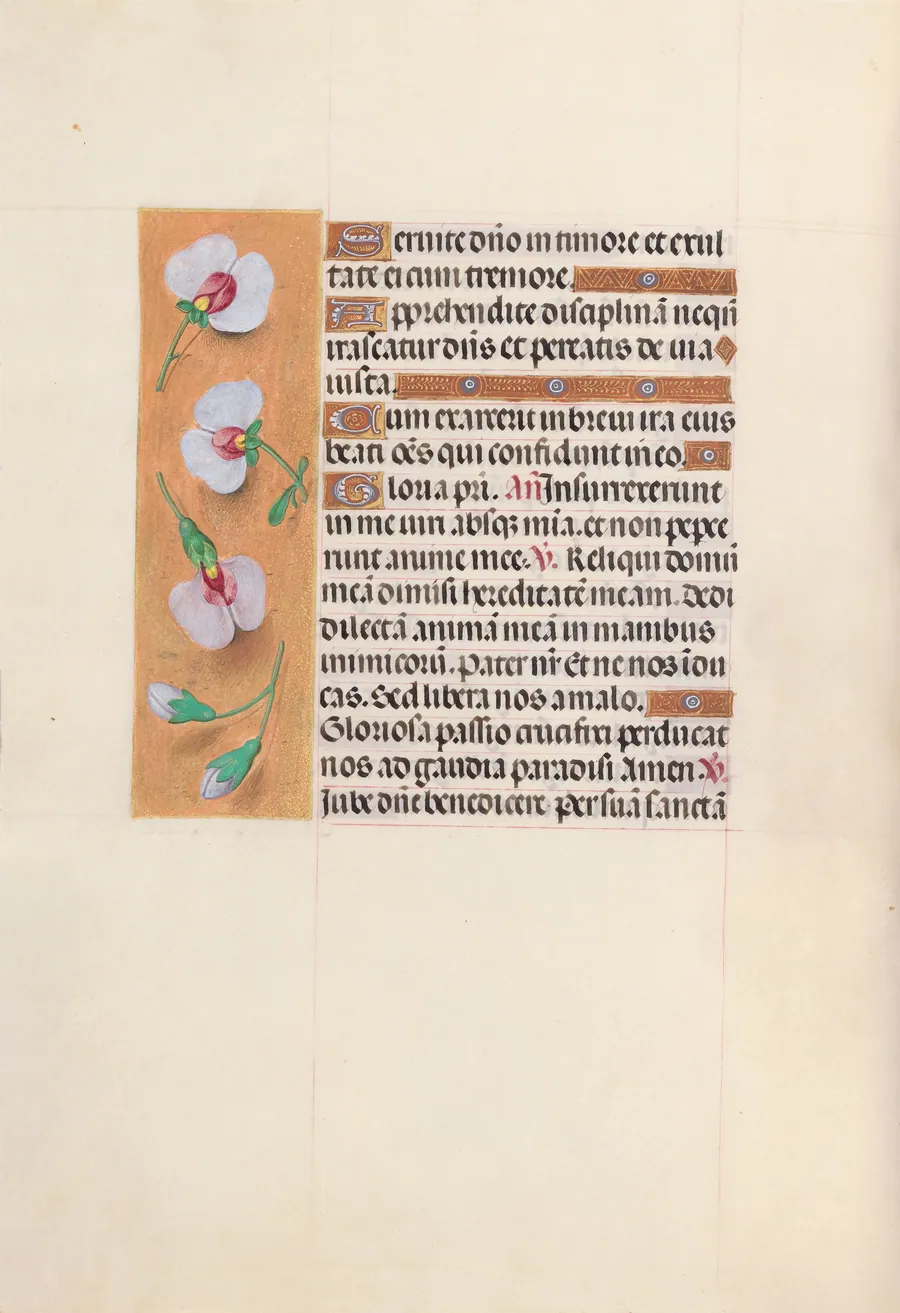 Seruite dño in timore et exul
tate ei cum tremore.
Apprehendite disciplinã nequñ
irascatur dñs et pereatis de uia
iusta.
Cum exarserit in breui ira eius
beati oẽs qui confidunt in eo.
Gloria pri. Añ Insurrexerunt
in me uiri absqȝ mĩa. et non peper
runt anime mee. V̾. Reliqui domũ
meã dimisi hereditatẽ meam. Dedi
dilectã animã meã in manibus
inimicorũ. Pater nr̃ Et ne nos ĩdu
cas. Sed libera nos a malo.
Gloriosa passio crucifixi perducat
nos ad gaudia paradisi Amen. V̾.
Iube dñe benedicere Per suã sanctã